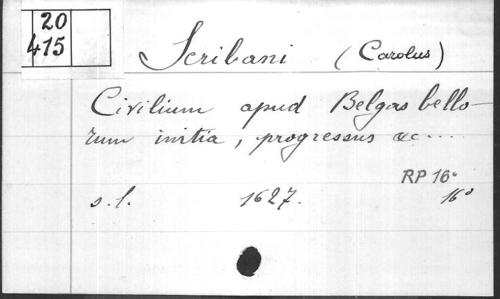 20
415
Scribani (Carolus)
Civilium apud Belgas bello-
rum initia, progressus &c....
RP 16°
s.l. 1627. 16°